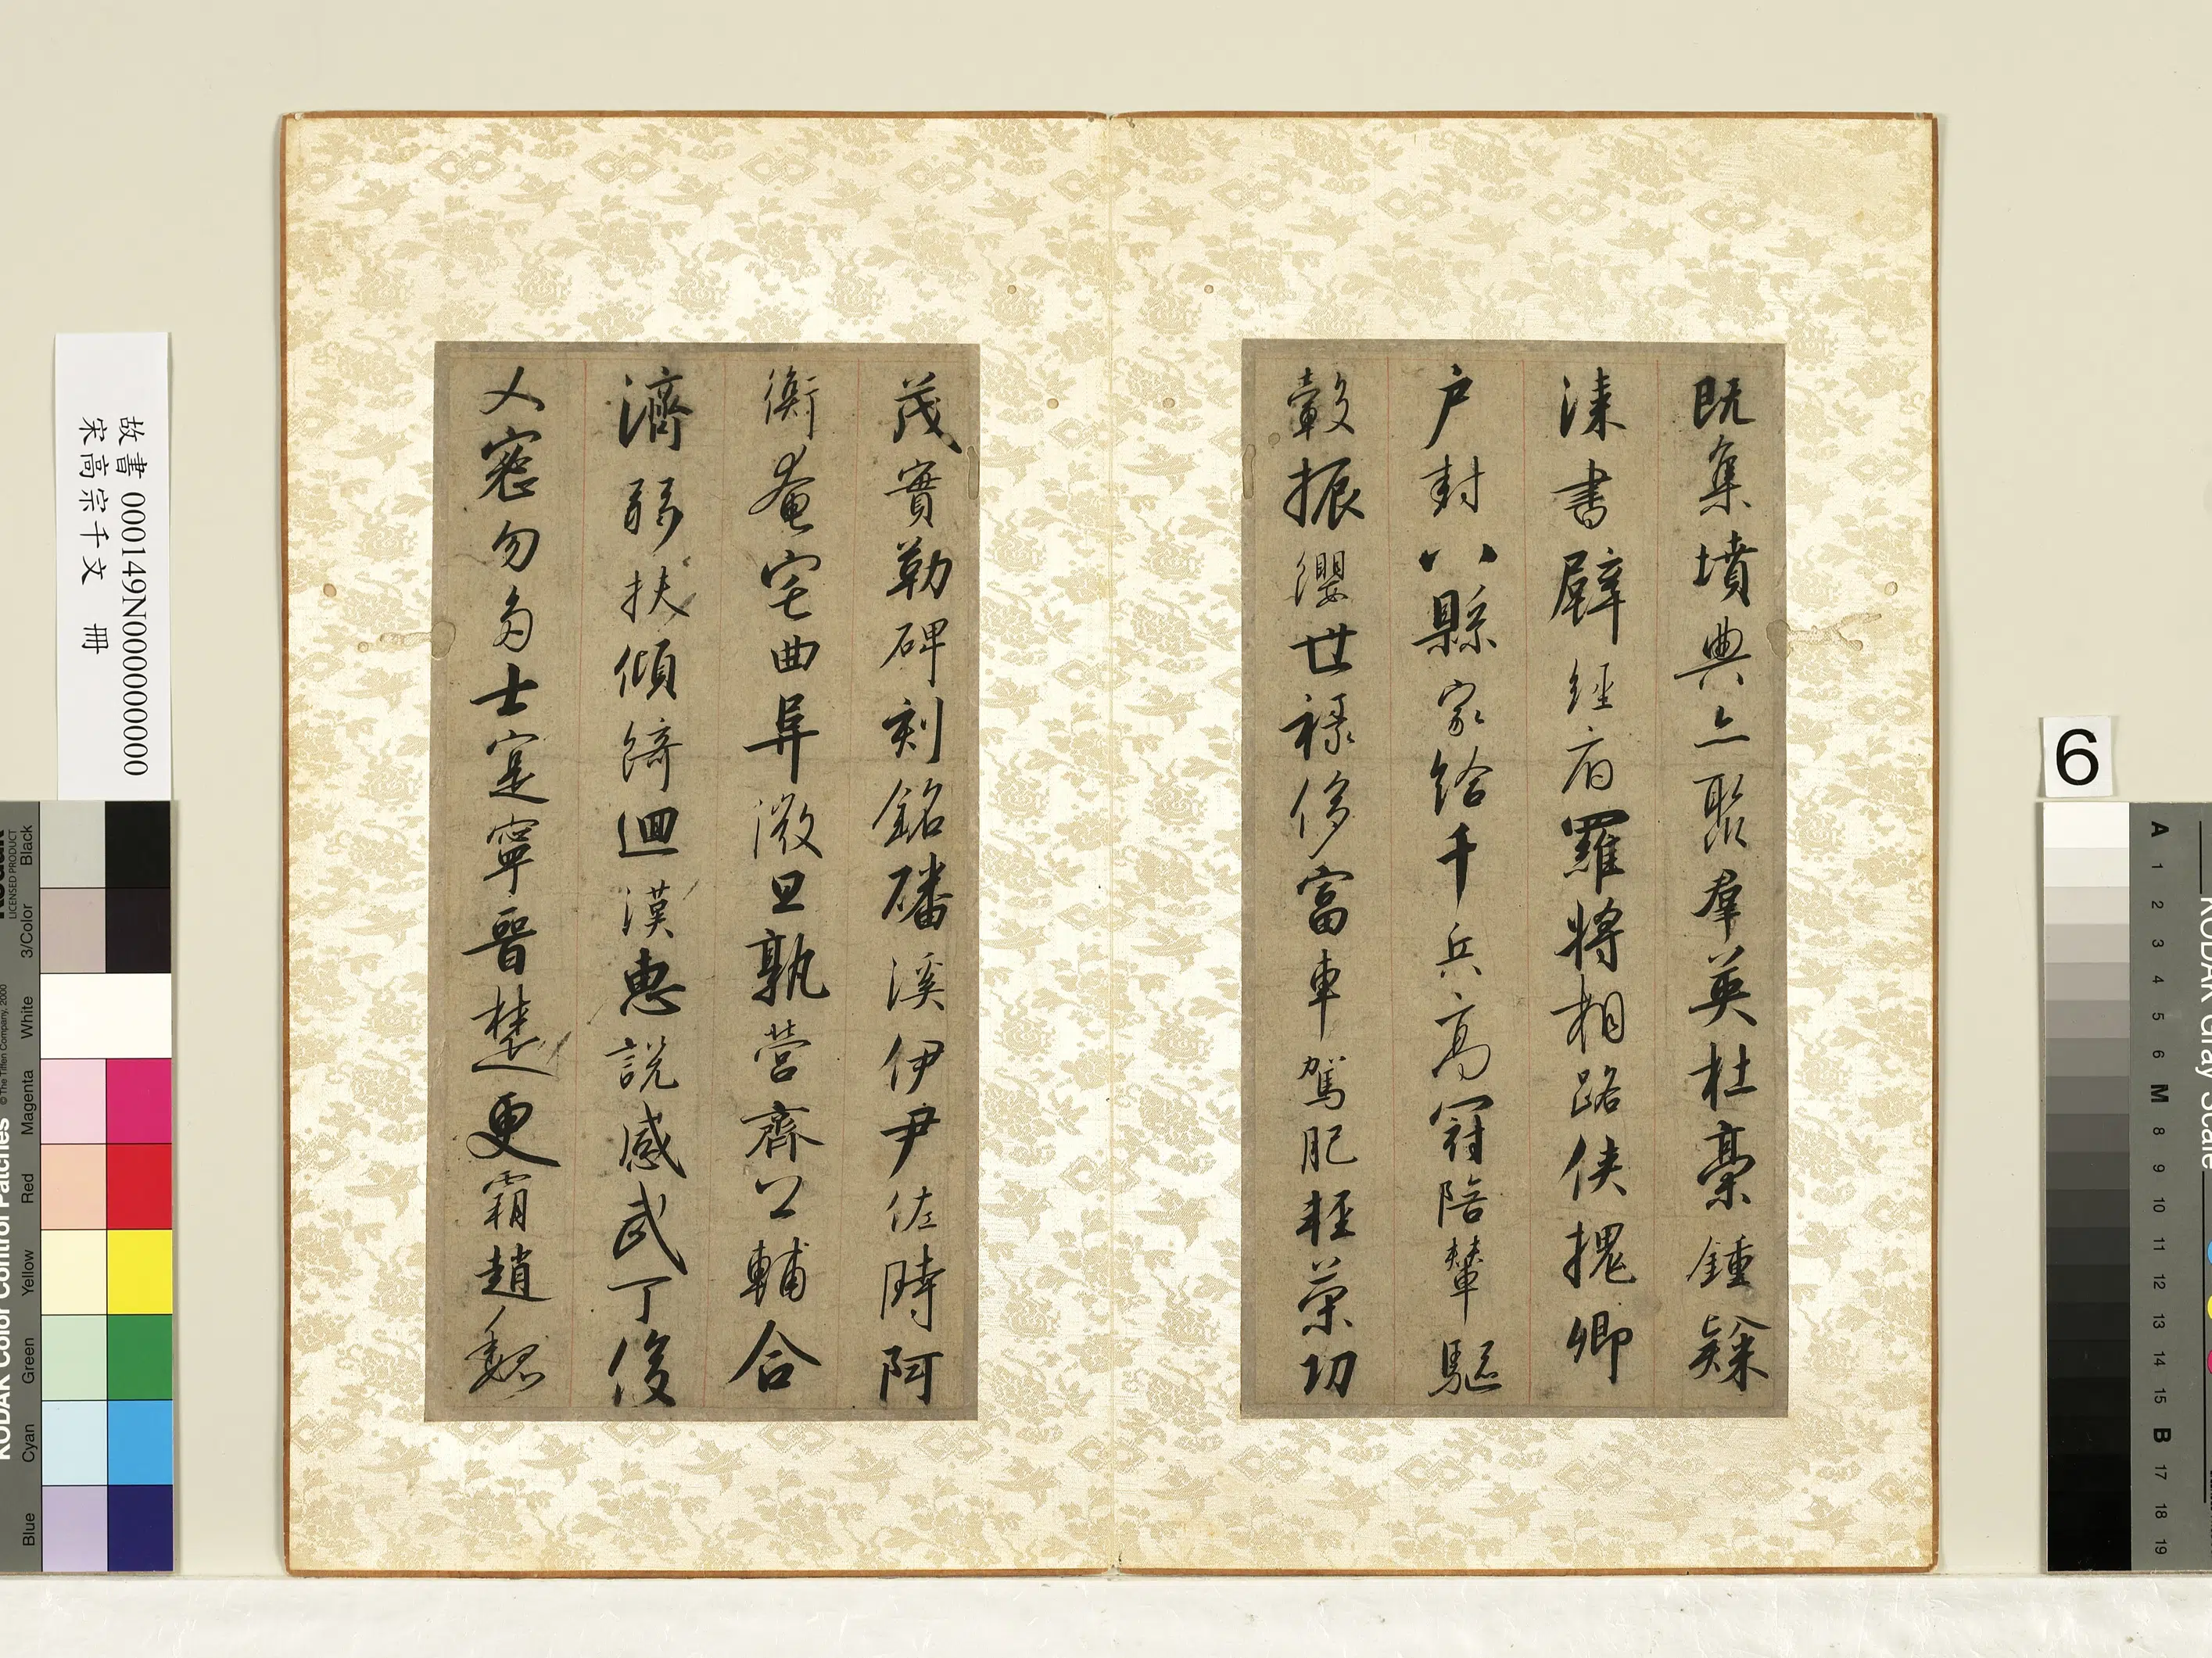 既集墳典亦聚羣英杜稾鍾隸
漆書壁經府羅將相路俠槐卿
户封八縣家給千兵高冠陪輦驅
轂振纓世祿侈富車駕肥輕策功
茂實勒碑刻銘磻溪伊尹佐時阿
衡奄宅曲阜微旦孰營齊公輔合
濟弱扶傾綺迴漢惠說感武丁俊
乂密勿多士寔寧晉楚更霸趙魏
故書 000149N000000000
宋高宗千文 冊
6
KODAK Color Control Patches
LICENSED PRODUCT
© The Tiffen Company, 2000
Blue Cyan Green Yellow Red Magenta White 3/Color Black
KODAK Gray Scale
A 1 2 3 4 5 6 M 8 9 10 11 12 13 14 15 B 17 18 19